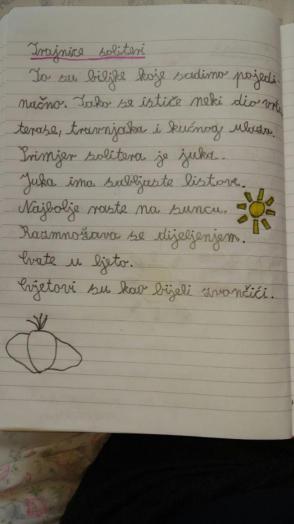 Trajnice soliteri
To su biljke koje sadimo pojedi
načno. Tako se ističe neki dio vrta,
terase, travnjaka i kućnog ulaza.
Primjer solitera je juka.
Juka ima sabljaste listove.
Najbolje raste na suncu.
Razmnožava se dijeljenjem.
Cvate u ljeto.
Cvjetovi su kao bijeli zvončići.